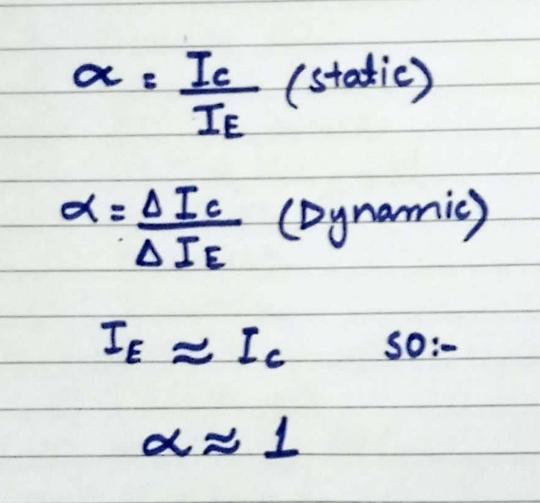 α = Ic / IE (static)
α = Δ Ic / Δ IE (Dynamic)
IE ≈ Ic so:-
α ≈ 1